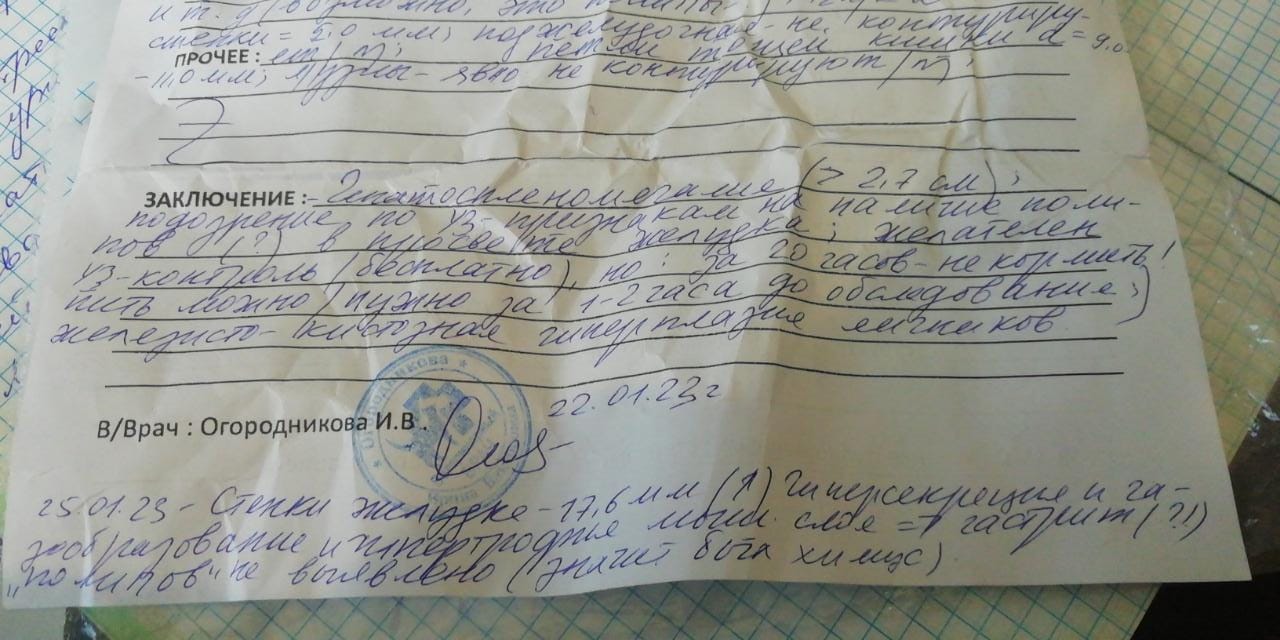 и т. д (возможно, это
стенки = 5.0 мм; поджелудочная - не контуриру-
ПРОЧЕЕ : ет (N); петли тощей кишки d = 9.0
-11.0 мм; л/узлы - явно не контурируют (N)
Z
ЗАКЛЮЧЕНИЕ :- Гепатоспленомегалия (> 2,7 см);
подозрение по УЗ-признакам на наличие поли-
пов (?) в просвете желудка; желателен
УЗ-контроль (бесплатно), но: за 20 часов - не кормить!
пить можно (нужно за 1-2 часа до обследования;)
железисто-кистозная гиперплазия яичников.
Огородникова
22.01.23г
В/Врач : Огородникова И.В .
25.01.23 - Стенки желудка - 17,6 мм (↑) Гиперсекреция и га-
зообразование и гипертрофия мыш. слоя => гастрит (?!)
"полипов" не выявлено (значит был химус)